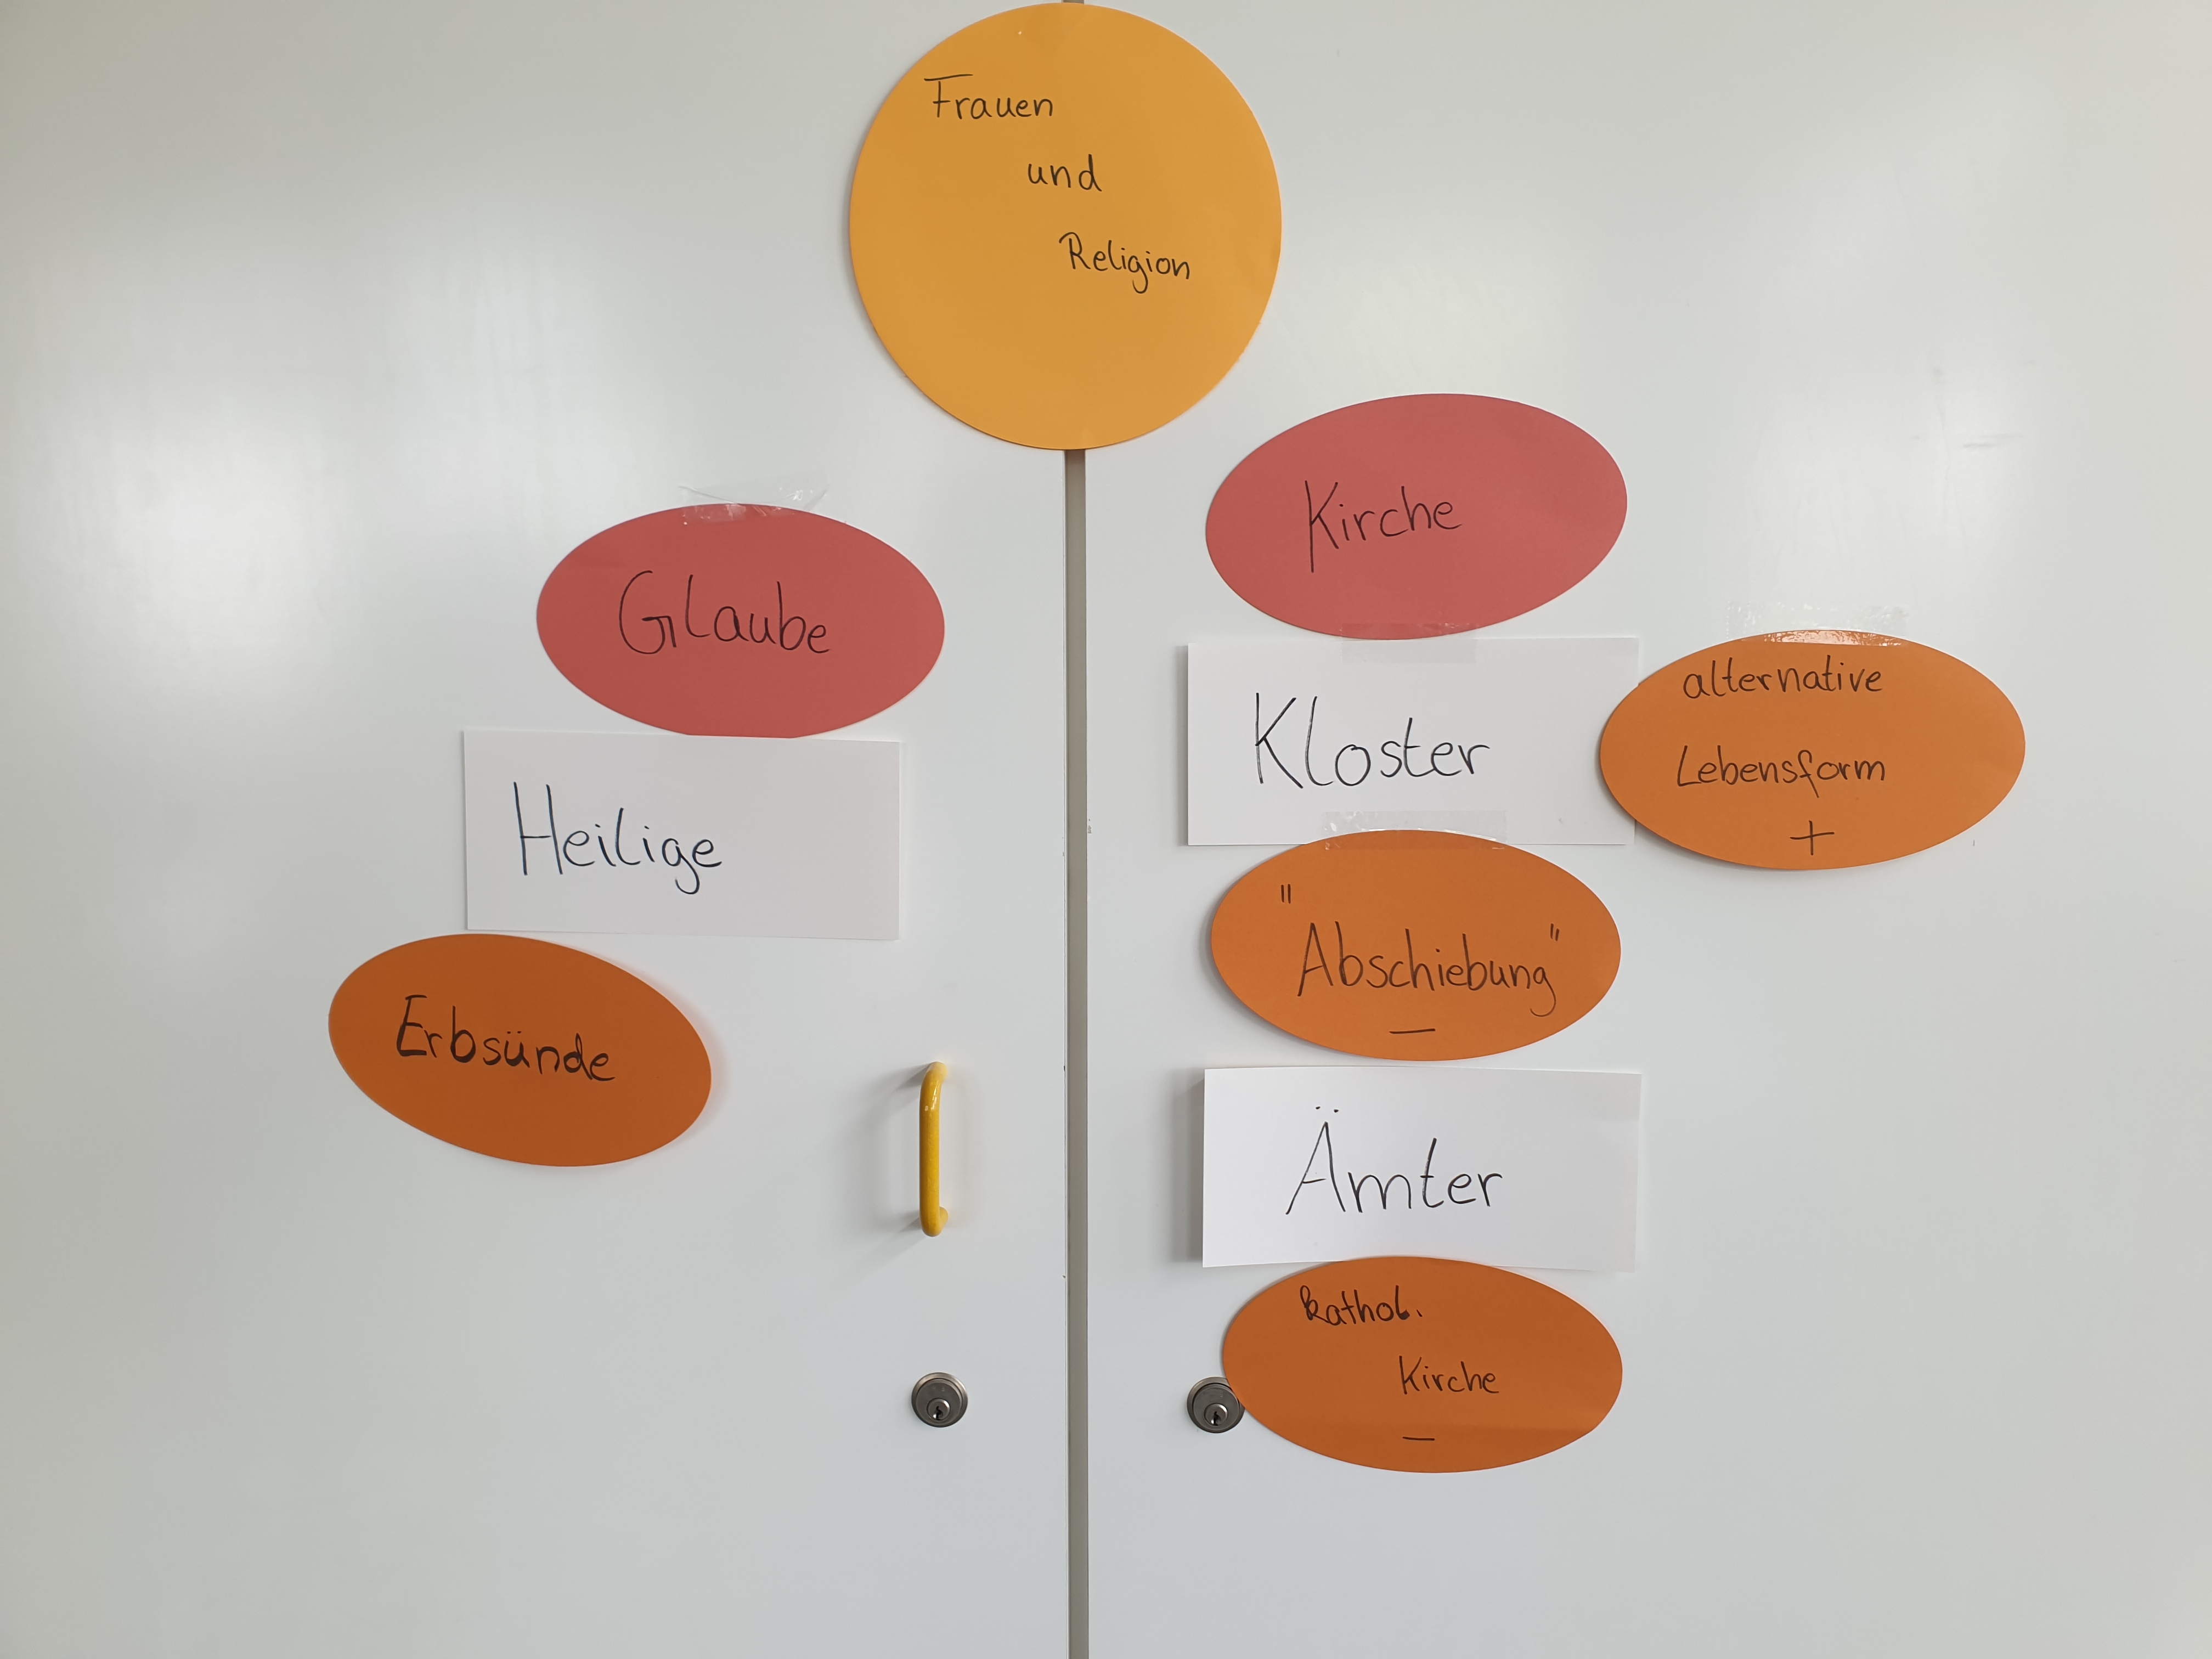 Frauen
und
Religion
Glaube
Heilige
Erbsünde
Kirche
Kloster
alternative
Lebensform
+
"Abschiebung"
–
Ämter
kathol.
Kirche
–